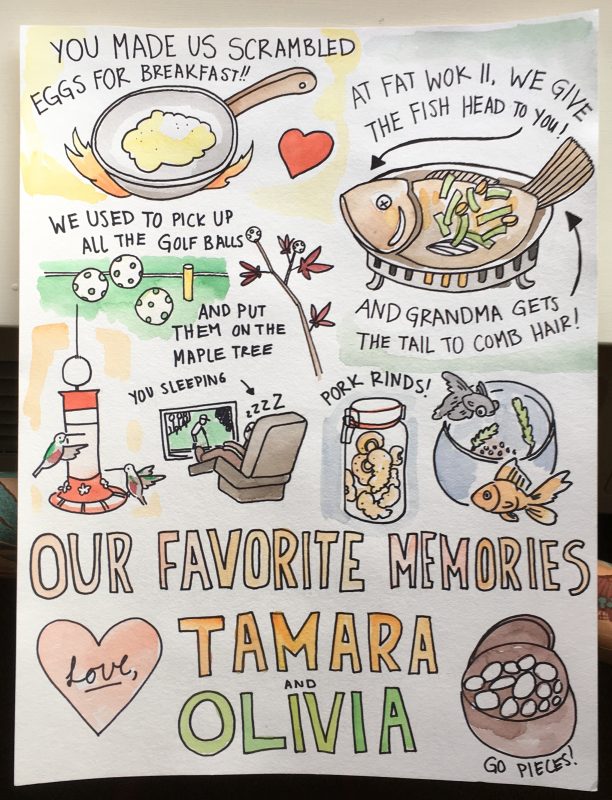 YOU MADE US SCRAMBLED
EGGS FOR BREAKFAST!!
AT FAT WOK II, WE GIVE
THE FISH HEAD TO YOU!
AND GRANDMA GETS
THE TAIL TO COMB HAIR!
WE USED TO PICK UP
ALL THE GOLF BALLS
AND PUT
THEM ON THE
MAPLE TREE
YOU SLEEPING
zzzZ
PORK RINDS!
OUR FAVORITE MEMORIES
Love,
TAMARA
AND
OLIVIA
GO PIECES!